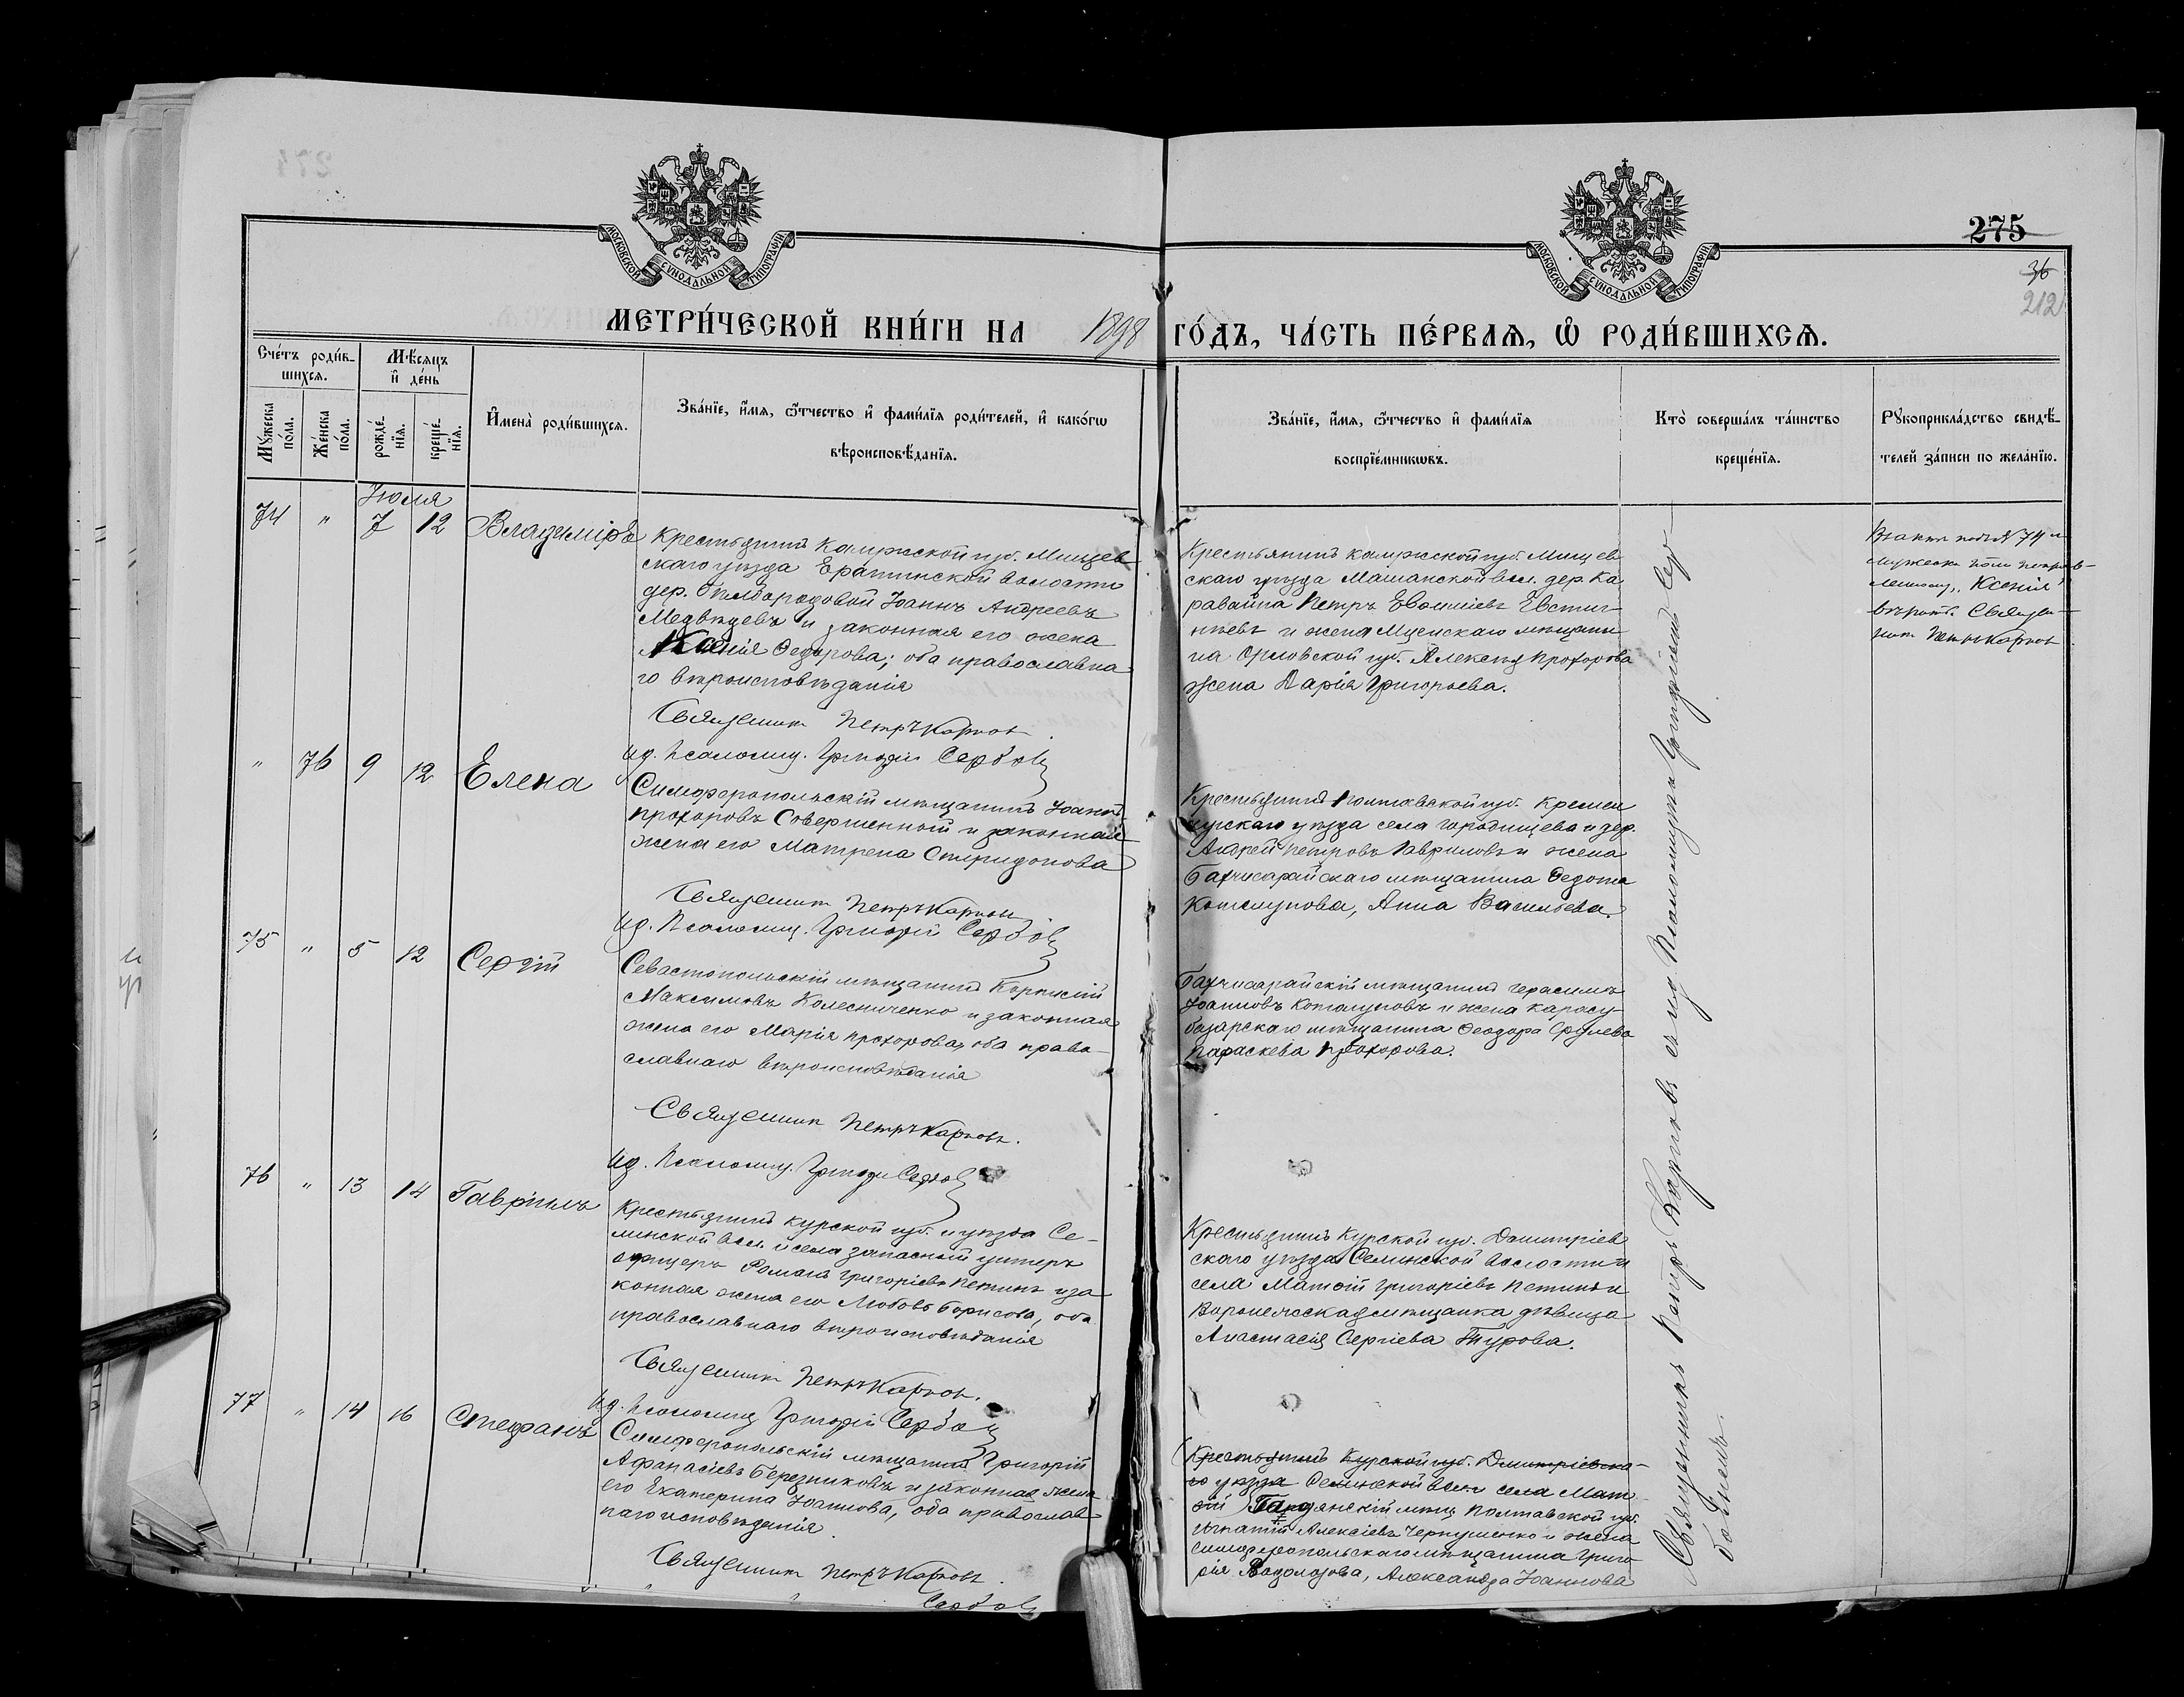 МОСКОВСКОЙ СѴНОДАЛЬНОЙ ТИПОГРАФІИ
МОСКОВСКОЙ СѴНОДАЛЬНОЙ ТИПОГРАФІИ
275
36
212
МЕТРИ́ЧЕСКОЙ КНИ́ГИ НА 1898 ГО́ДЪ, ЧА́СТЬ ПЕ́РВАЯ, Ѡ҆ РОДИ́ВШИХСЯ.
Сче́тъ роди́в-
шихся.
Мѣ́сяцъ
и҆ де́нь
Мꙋ́жеска по́ла.
Же́нска по́ла.
рожде́-
нїя.
креще́-
нїя.
И҆мена̀ роди́вшихся.
Зва́нїе, и҆́мя, ѻ҆́тчество и҆ фами́лїя роди́телей, и҆ како́гѡ
вѣроисповѣ́данїя.
Зва́нїе, и҆́мя, ѻ҆́тчество и҆ фами́лїя
воспрїе́мникѡвъ.
Кто̀ соверша́лъ та́инство
креще́нїя.
Рꙋкоприкла́дство свидѣ́-
телей за́писи по жела́нїю.
Іюля
74 " 7 12 Владиміръ
Крестьянинъ Калужской губ. Мещев-
скаго уѣзда волости
дер. Іоаннъ Андреевъ
Медвѣдевъ и законная его жена
Ксенія Федорова; оба православна-
го вѣроисповѣданія
Священникъ Петръ Карповъ.
ид. Псаломщ. Григорій Сербовъ
Крестьянинъ Калужской губ. Мещев-
скаго уѣзда вол. дер. Ка-
равайна Петръ Евстиг-
нѣевъ и жена Мценскаго мѣщани-
на Орловской губ. Алексѣя Прохорова
жена Дарія Григорьева.
Въ актѣ подъ № 74 м.
мужеска пола исправ-
ленному „Ксенія"
вѣрить. Священ-
никъ Петръ Карповъ
" 76 9 12 Елена
Симферопольскій мѣщанинъ Іоаннъ
Прохоровъ Совершенный и законная
жена его Матрена Спиридонова
Священникъ Петръ Карповъ
ид. Псаломщ. Григорій Сербовъ
Крестьянинъ Полтавской губ. Кремен-
чугскаго уѣзда села Городищева и дер.
Андрей Петровъ Гавриловъ и жена
Бахчисарайскаго мѣщанина Федота
Котлунова, Анна Васильева.
75 " 5 12 Сергій
Севастопольскій мѣщанинъ Корнилій
Максимовъ Колесниченко и законная
жена его Марія Прохорова, оба право-
славнаго вѣроисповѣданія
Священникъ Петръ Карповъ.
ид. Псаломщ. Григорій Сербовъ
Бахчисарайскій мѣщанинъ Герасимъ
Іоанновъ Котлуновъ и жена Карасу-
базарскаго мѣщанина Феодора
Параскева Прохорова.
76 " 13 14 Гавріилъ
Крестьянинъ Курской губ. и уѣзда Се-
линской вол. и села запасный унтеръ
офицеръ Романъ Григоріевъ Петинъ и за-
конная жена его Любовь Борисова, оба
православнаго вѣроисповѣданія
Священникъ Петръ Карповъ.
ид. Псаломщ. Григорій Сербовъ
Крестьянинъ Курской губ. Дмитріев-
скаго уѣзда Селинской волости и
села Матѳій Григоріевъ Петинъ и
Воронежская мѣщанка дѣвица
Анастасія Сергіева Турова.
77 " 14 16 Стефанъ
Симферопольскій мѣщанинъ Григорій
Афанасіевъ Березниковъ и законная жена
его Екатерина Іоаннова, оба православ-
наго исповѣданія.
Священникъ Петръ Карповъ.
Сербовъ
(Крестьянинъ Курской губ. Дмитріевска-
го уѣзда Селинской вол. села Мат-
ѳій) Гадянскій мѣщ. Полтавской губ.
Игнатій Алексіевъ Чернушенко и жена
симферопольскаго мѣщанина Григо-
рія Водолазова, Александра Іоаннова
Священникъ Петръ Карповъ съ и. д. Псаломщика Григоріемъ Сер-
бовымъ.